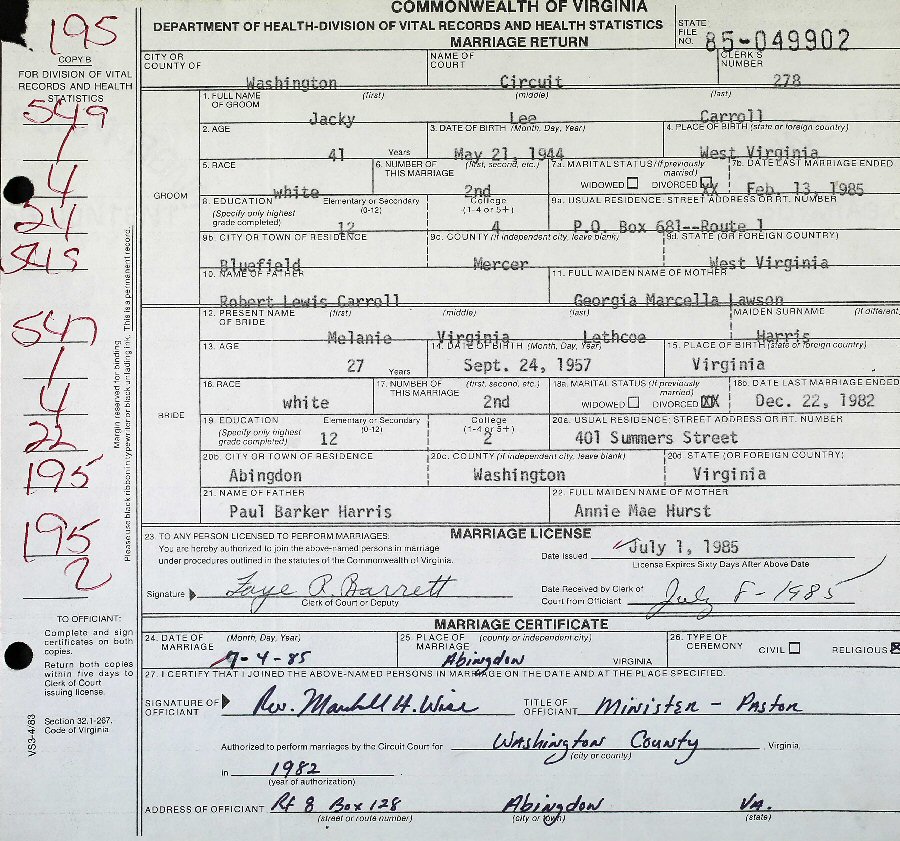 COMMONWEALTH OF VIRGINIA
DEPARTMENT OF HEALTH-DIVISION OF VITAL RECORDS AND HEALTH STATISTICS
MARRIAGE RETURN
STATE FILE NO. 85-049902
195
COPY B
FOR DIVISION OF VITAL RECORDS AND HEALTH STATISTICS
549
1
4
24
549
547
1
4
22
195
195
2
Margin reserved for binding This is a permanent record.
Please use black ribbon in typewriter or black unfading ink.
TO OFFICIAL:
Complete and sign certificates on both copies.
Return both copies within five days to Clerk of Court issuing license.
Section 32.1-267. Code of Virginia
VS3-4/83
CITY OR COUNTY OF Washington
NAME OF COURT Circuit
CLERK'S NUMBER 278
GROOM
1. FULL NAME OF GROOM (first) (middle) (last)
Jacky Lee Carroll
2. AGE 41 Years
3. DATE OF BIRTH (Month, Day, Year) May 21, 1944
4. PLACE OF BIRTH (state or foreign country) West Virginia
5. RACE white
6. NUMBER OF THIS MARRIAGE (first, second, etc.) 2nd
7a. MARITAL STATUS (If previously married) WIDOWED DIVORCED XX
7b. DATE LAST MARRIAGE ENDED Feb. 13, 1985
8. EDUCATION (Specify only highest grade completed) Elementary or Secondary (0-12) 12
College (1-4 or 5+) 4
9a. USUAL RESIDENCE: STREET ADDRESS OR RT. NUMBER P.O. Box 681--Route 1
9b. CITY OR TOWN OF RESIDENCE Bluefield
9c. COUNTY (If independent city, leave blank) Mercer
9d. STATE (OR FOREIGN COUNTRY) West Virginia
10. NAME OF FATHER Robert Lewis Carroll
11. FULL MAIDEN NAME OF MOTHER Georgia Marcella Lawson
BRIDE
12. PRESENT NAME OF BRIDE (first) (middle) (last) MAIDEN SURNAME (If different)
Melanie Virginia Lethcoe Harris
13. AGE 27 Years
14. DATE OF BIRTH (Month, Day, Year) Sept. 24, 1957
15. PLACE OF BIRTH (state or foreign country) Virginia
16. RACE white
17. NUMBER OF THIS MARRIAGE (first, second, etc.) 2nd
18a. MARITAL STATUS (If previously married) WIDOWED DIVORCED XX
18b. DATE LAST MARRIAGE ENDED Dec. 22, 1982
19. EDUCATION (Specify only highest grade completed) Elementary or Secondary (0-12) 12
College (1-4 or 5+) 2
20a. USUAL RESIDENCE: STREET ADDRESS OR RT. NUMBER 401 Summers Street
20b. CITY OR TOWN OF RESIDENCE Abingdon
20c. COUNTY (If independent city, leave blank) Washington
20d. STATE (OR FOREIGN COUNTRY) Virginia
21. NAME OF FATHER Paul Barker Harris
22. FULL MAIDEN NAME OF MOTHER Annie Mae Hurst
MARRIAGE LICENSE
23. TO ANY PERSON LICENSED TO PERFORM MARRIAGES:
You are hereby authorized to join the above-named persons in marriage
under procedures outlined in the statutes of the Commonwealth of Virginia.
Date Issued July 1, 1985
License Expires Sixty Days After Above Date
Signature Faye R. Barrett
Clerk of Court or Deputy
Date Received by Clerk of Court from Official July 8-1985
MARRIAGE CERTIFICATE
24. DATE OF MARRIAGE (Month, Day, Year) 7-4-85
25. PLACE OF MARRIAGE (county or independent city) Abingdon VIRGINIA
26. TYPE OF CEREMONY CIVIL RELIGIOUS X
27. I CERTIFY THAT I JOINED THE ABOVE-NAMED PERSONS IN MARRIAGE ON THE DATE AND AT THE PLACE SPECIFIED.
SIGNATURE OF OFFICIANT Rev. Marshall H. Wise
TITLE OF OFFICIANT Minister - Pastor
Authorized to perform marriages by the Circuit Court for Washington County, Virginia,
(city or county)
in 1982
(year of authorization)
ADDRESS OF OFFICIANT Rt 8 Box 128 Abingdon VA.
(street or route number) (city or town) (state)